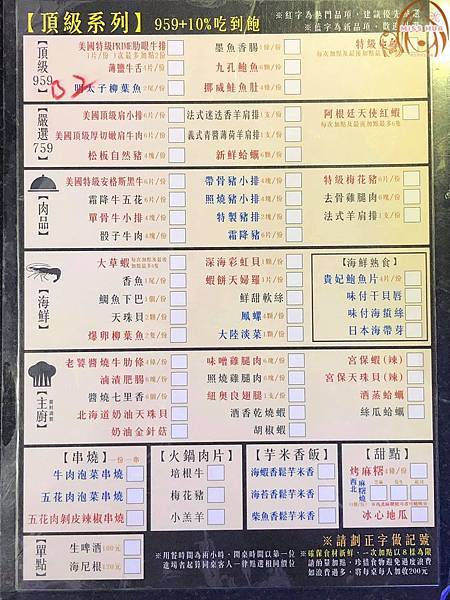 【頂級系列】 959+10%吃到飽
※紅字為熱門品項，建議優先
※藍字為新品項，歡
MISS HUA
【頂級】959
美國特級PRIME肋眼牛排
1片/份 1次最多加點2份
墨魚香腸 1條/份
特級
薄鹽牛舌 4片/份
九孔鮑魚
明太子柳葉魚 2尾/份
挪威鮭魚肚 4片/份
【嚴選】759
美國頂級肩小排 6片/份
法式迷迭香羊肩排 1片/份
阿根廷天使紅蝦
每次加點及最後加點最多6隻
美國頂級厚切嫩肩牛肉 6片/份
義式青醬薄荷羊肩排 1片/份
松板自然豬 4塊/份
新鮮蛤蠣 6顆/份
【肉品】
美國特級安格斯黑牛 6片/份
帶骨豬小排 4塊/份
特級梅花豬 6片/份
霜降牛五花 6片/份
照燒豬小排 4塊/份
去骨雞腿肉 6塊/份
單骨牛小排 4塊/份
特製豬排 1塊/份
法式羊肩排 1片/份
骰子牛肉 4塊/份
霜降豬 6片/份
【海鮮】
大草蝦 每次加點及最後加點最多6隻
深海彩虹貝 1顆/份
【海鮮熟食】
香魚 1尾/份
蝦餅天婦羅 1片/份
貴妃鮑魚片 4片/份
鯛魚下巴 1個/份
鮮甜軟絲
味付干貝唇
天珠貝 2顆/份
鳳螺 4顆/份
味付海蜇絲
爆卵柳葉魚 2隻/份
大陸淡菜 1顆/份
日本海帶芽
【主廚】
老饕醬燒牛肋條 4條/份
味噌雞腿肉 6塊/份
宮保蝦(辣)
滷漬肥腸 6塊/份
照燒雞腿肉 6塊/份
宮保天珠貝(辣)
醬燒七里香 4個/份
紐奧良翅腿 1支/份
酒蒸蛤蠣
北海道奶油天珠貝
酒香乾燒蝦
絲瓜蛤蠣
奶油金針菇
胡椒蝦
【串燒】 一份一串
【火鍋肉片】
【芋米香飯】
【甜點】
牛肉泡菜串燒
培根牛
海蝦香鬆芋米香
烤麻糬 4條/份
五花肉泡菜串燒
梅花豬
海苔香鬆芋米香
西北麻糬燒
五花肉剝皮辣椒串燒
小羔羊
柴魚香鬆芋米香
冰心地瓜
【單點】
生啤酒 100元
※請劃正字做記號
海尼根 120元
※用餐時間為兩小時，開桌時間以第一位
進場者起算同桌客人一律點選相同價位
※確保食材新鮮，一次加點以8樣為限
請酌量加點，珍惜食物避免過度浪費
如浪費過多，將每桌每人加收200元